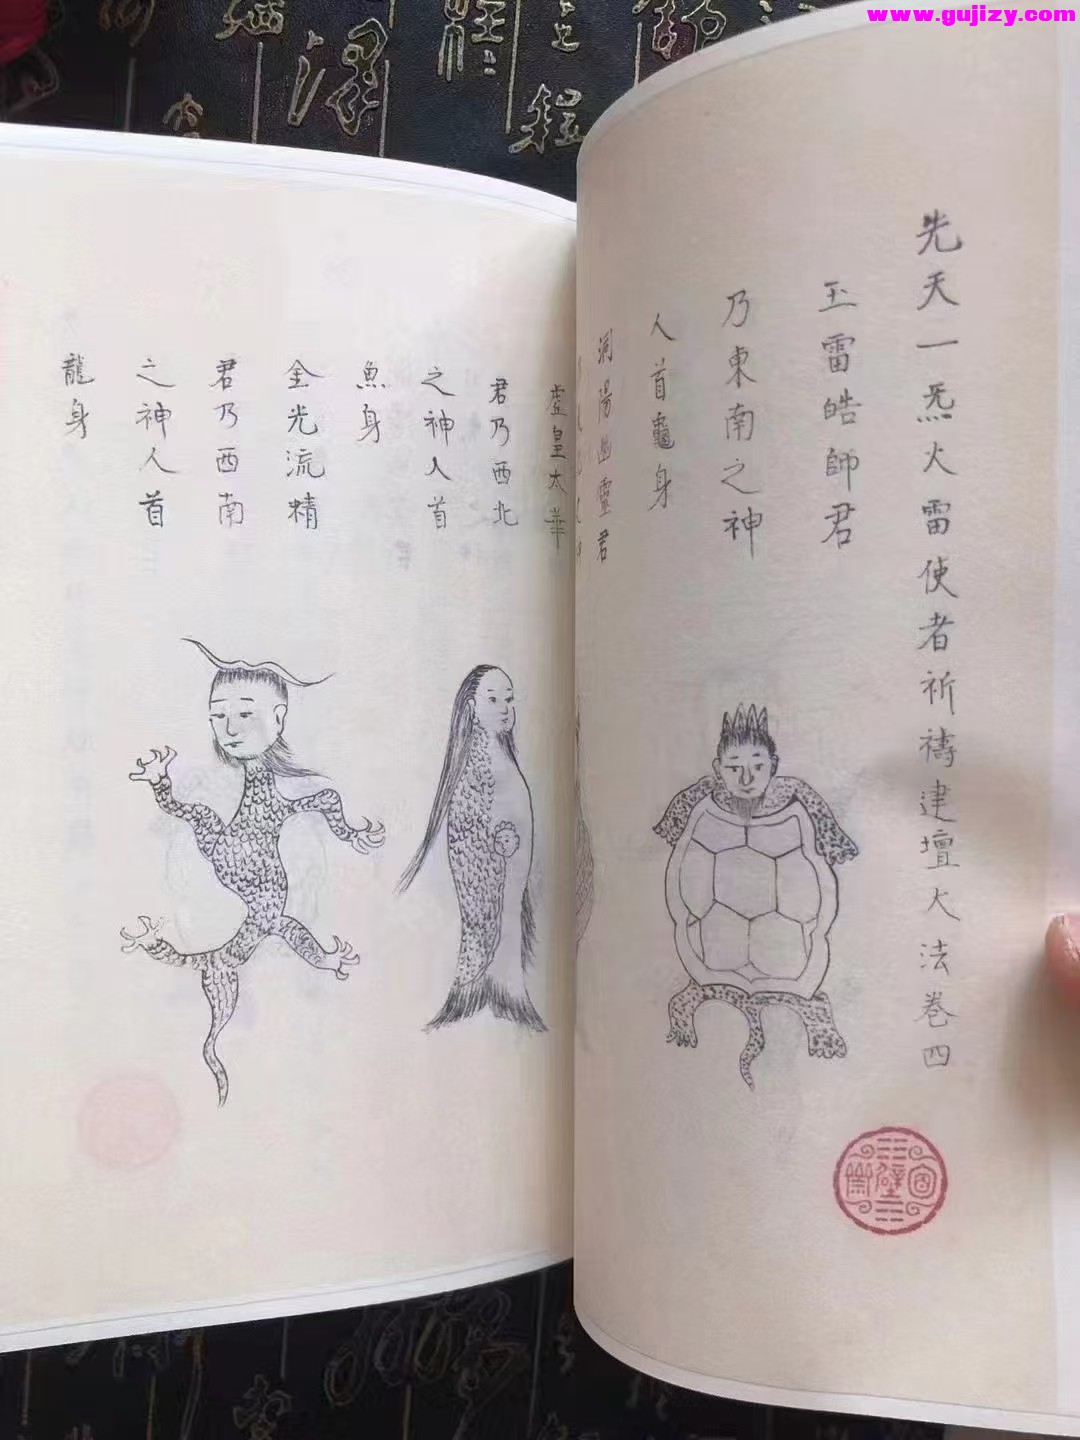 www.gujizy.com
先天一炁火雷使者祈禱建壇大法卷四
玉雷皓師君
乃東南之神
人首龜身
洞陽幽靈君
虛皇太華
君乃西北
之神人首
魚身
金光流精
君乃西南
之神人首
龍身